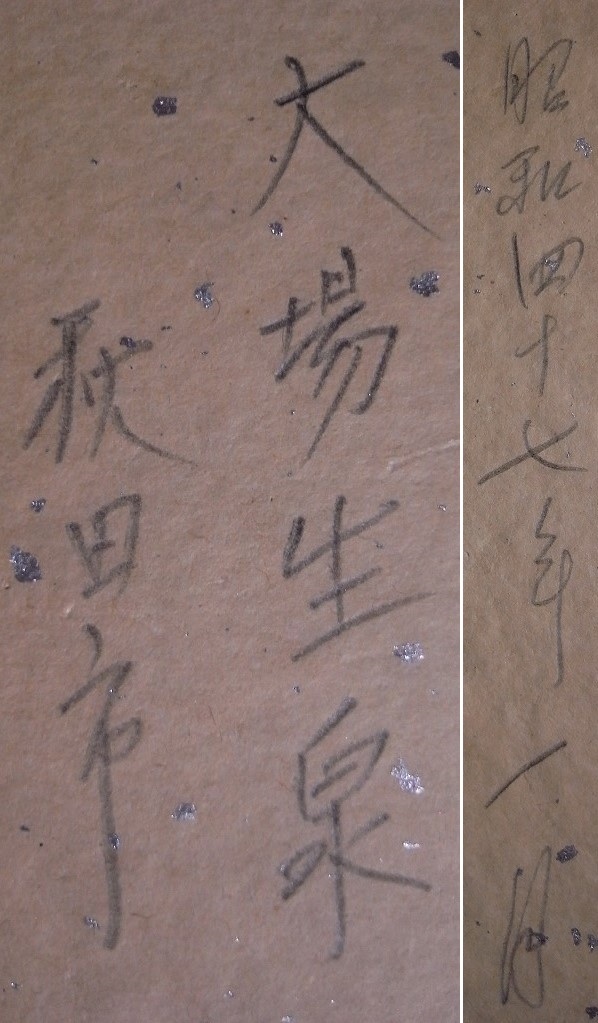 大場生泉
秋田市
昭和四十七年一月